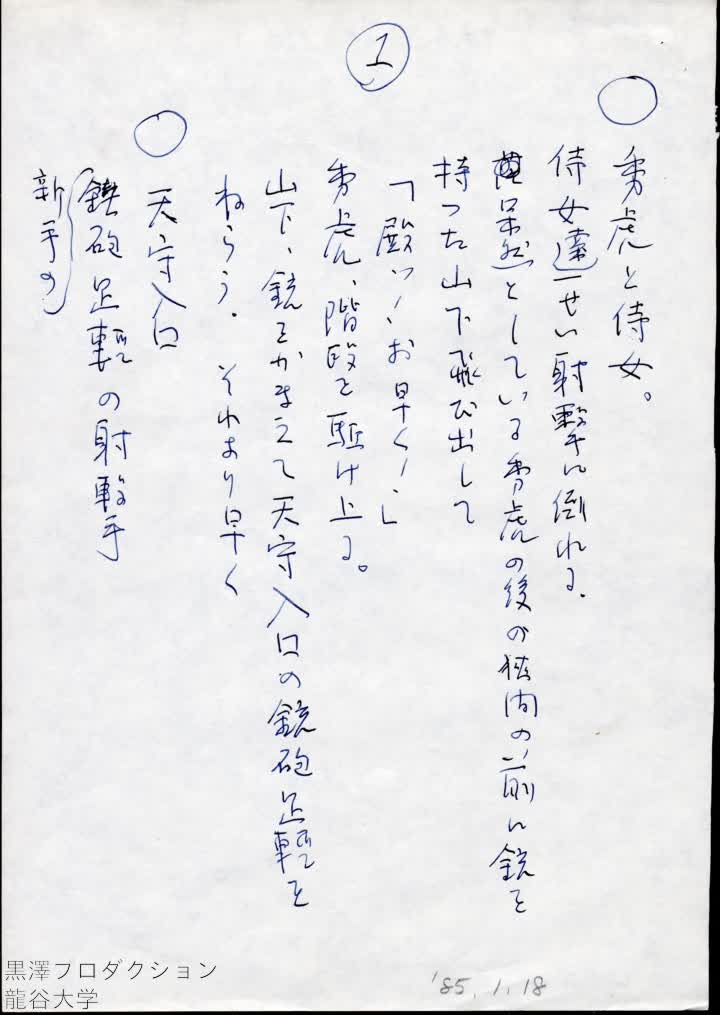 1
○
秀虎と侍女。
侍女達一せい射撃に倒れる.
呆然としている秀虎の後の狭間の前に銃を
持った山下飛び出して
「殿ッ!、お早く!」
秀虎、階段を駈け上る。
山下、銃をかまえて天守入口の鉄砲足軽を
ねらう. それより早く
○
天守入口
鉄砲足軽の射撃手
新手の
'85.1.18
黒澤プロダクション
龍谷大学